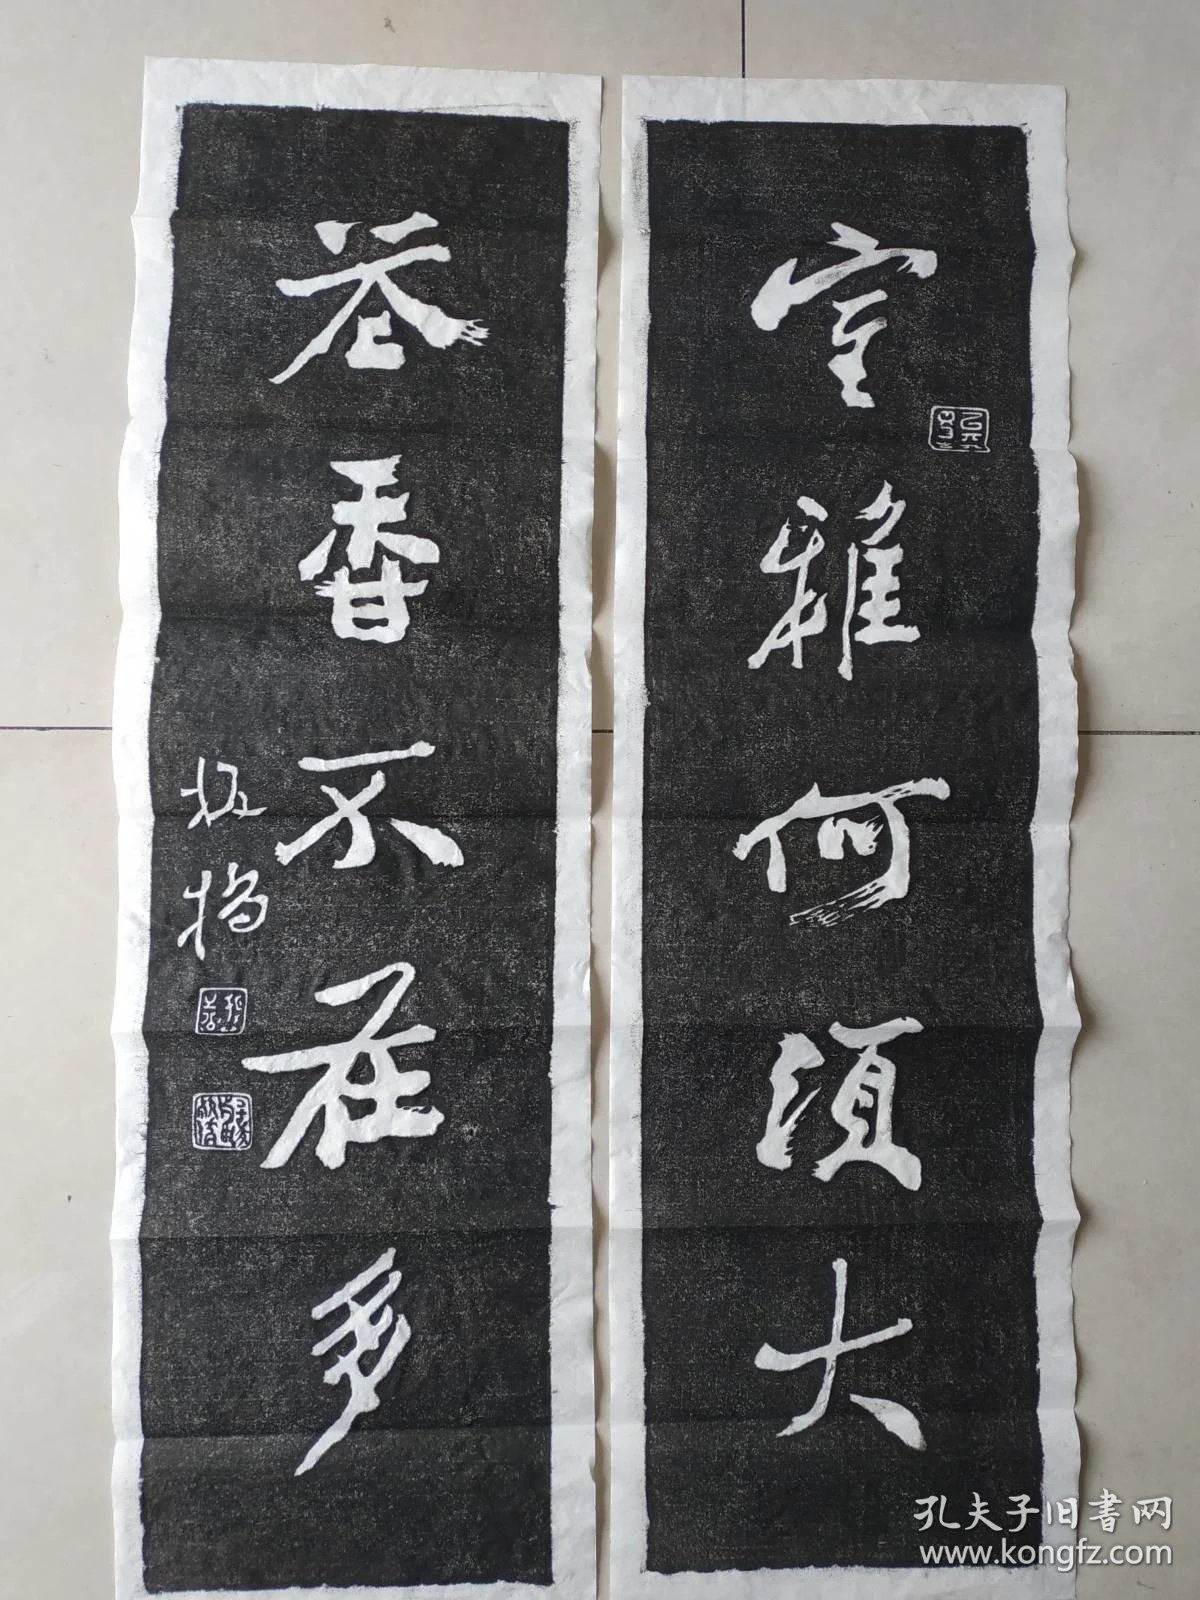 室雅何须大
花香不在多
板桥
孔夫子旧書网
www.kongfz.com